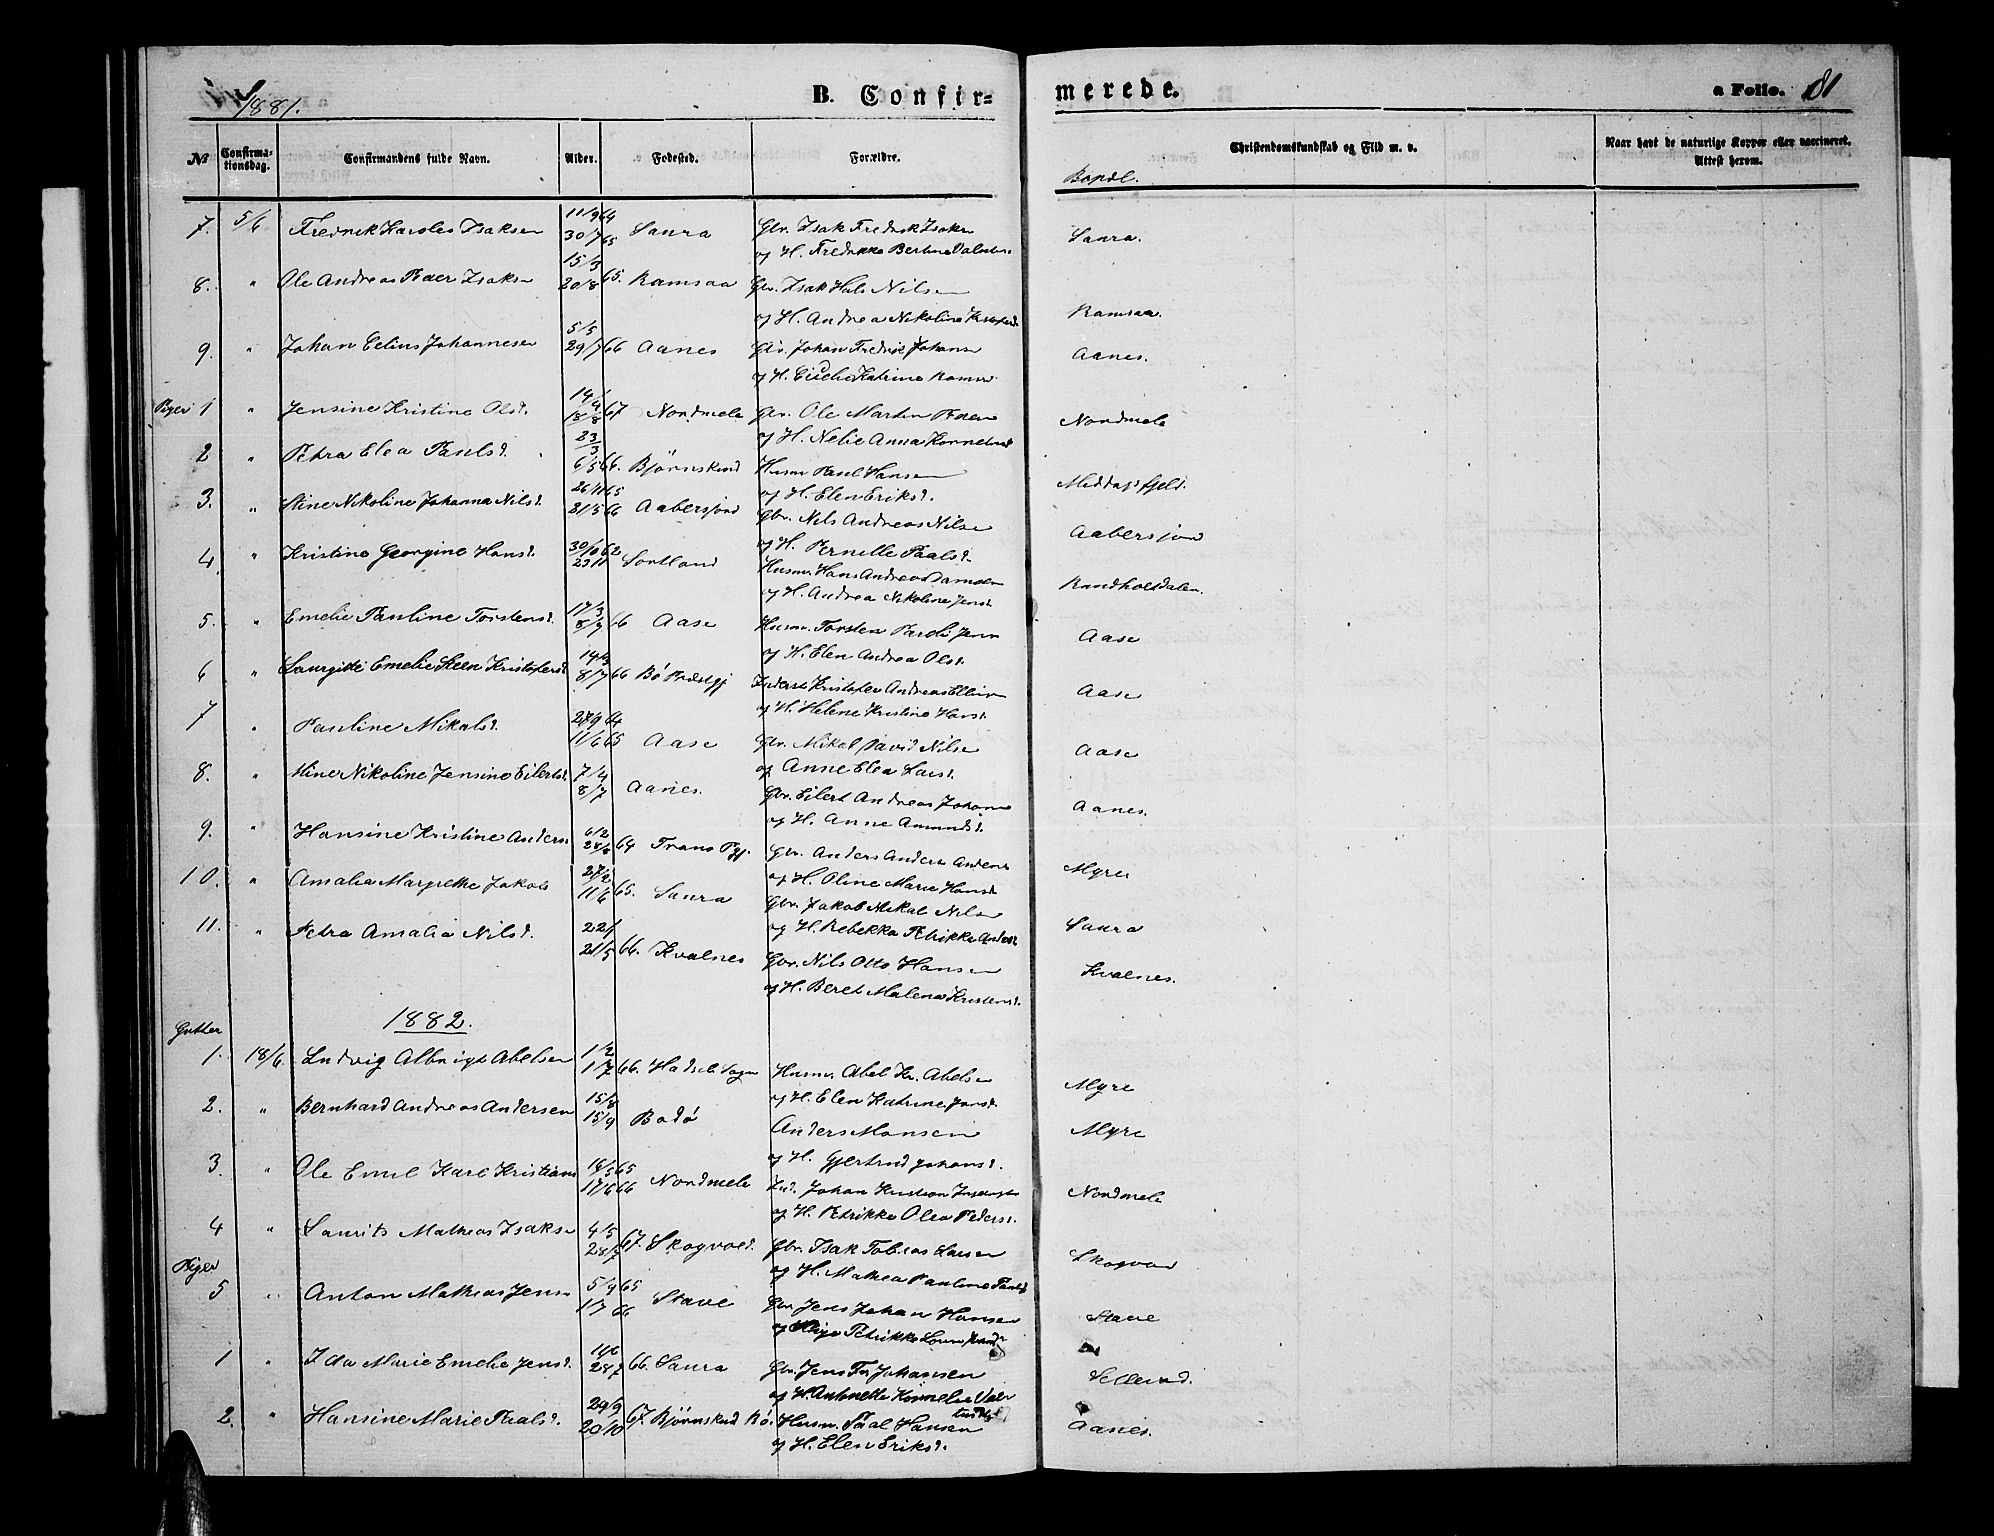 1881.
B. Confir=
merede.
a Folio. 81
№
Confirma-
tionsdag.
Confirmandens fulde Navn.
Alder.
Fødested.
Forældre.
Christendomskundskab og Flid m. v.
Naar havt de naturlige Kopper eller vaccineret.
Attest herom.
Bopæl.
7. 5/6 Fredrik Karoles Isaksen 11/9 64 30/7 65 Saura Gbr. Isak Fredrik Isaksen Saura.
og H. Fredrikke Bertine
8. " Ole Andreas Peder Isaksen 15/3 20/8 65. Ramsaa Gbr. Isak Hals Nilsen
og H. Andrea Nikoline Ramsaa.
9. " Johan Edias Johannesen 5/5 29/7 66 Aanes Gbr. Johan Fredrik Johans Aanes.
og H. Katrine
Piger 1 " Jensine Kristine Olsd. 14/4 18/8 67 Nordmele Gbr. Ole Martin Peders Nordmele
og H. Nelie Anna Kornelius
2 " Petra Elea Paulsd. 23/3 6/5 66. Bjørnskind Husm Paul Hansen
og H. Elen Eriksd. Middagsfjeld.
3. " Stine Nikoline Johanna Nilsd. 26/11 65 21/5 66 Aabersjord Gbr. Nils Andreas Nilsen
og H. Pernille Paalsd. Aabersjord
4. " Kristine Georgine Hansd. 30/10 62 23/11 Sortland Husm. Hans Andreas
og H. Andrea Nikoline Jensd.
5. " Emelie Pauline Torstensd. 17/3 8/7 66 Aase Husm. Torsten Jenn Aase
og H. Elen Andrea Olsd.
6 " Laurgitte Emelie Steen Kristofersd. 14/3 8/7 66 Bø Præstgj Inderst Kristofer Andreas Ellings Aase
og H. Helene Kristine Hansd.
7 " Pauline Mikalsd. 27/9 64 11/6 65 Aase Gbr. Mikal David Nilsen Aase
og Anne Elea Larsd.
8. " Stine Nikoline Jensine Eilertsd. 7/4 8/7 Aanes. Gbr. Eilert Andreas Johans Aanes.
og H. Anne Amundsd.
9. " Hansine Kristine Anders 6/2 64 Tranø Pgj. Gbr. Anders Anders
og H. Oline Marie Hansd. Myre
10. " Amalia Margrethe Jakobs 27/2 11/6 65. Saura Gbr. Jakob Mikal Nilsen
og H. Rebekka Petrikke Andersd. Saura
11. " Petra Amalia Nilsd. 22/1 21/5 66. Kvalnes Gbr. Nils Otto Hansen
og H. Beret Malena Kristensd. Kvalnes.
1882.
Gutter
1. 18/6. Ludvig Albrigt Abelsen 1/2 1/7 66. Hadsel Sogn Husm. Abel Kr. Abelsen Myre
og H. Elen Katrine Jensd.
2. " Bernhard Andreas Andersen 15/8 15/9 Bodø Anders Monsen Myre
og H. Gjertrud Johansd.
3. " Ole Emil Karl Kristians 14/5 65 17/6 66 Nordmele Ind. Johan Kristian Nordmele
og H. Petrikke Olea Pedersd.
4 " Laurits Mathias Isaksen 4/5 28/7 67. Skogvold. Gbr. Isak Tobias Larsen
og H. Mathea Pauline Paulsd
Piger
5 " Anton Mathias Jens 5/9 65 1/7 66 Stave Gbr. Jens Johan Hansen Stave
og Petrikke
1 " Ida Marie Emelie Jensd. 11/6 24/7 66. Saura Gbr. Jens Fr Johansen
og H. Antonette Kornelia
2. " Hansine Marie Paalsd. 29/9 20/10 67. Bjørnskind Bø. Husm. Paal Hansen Aanes.
og H. Elen Eriksd.